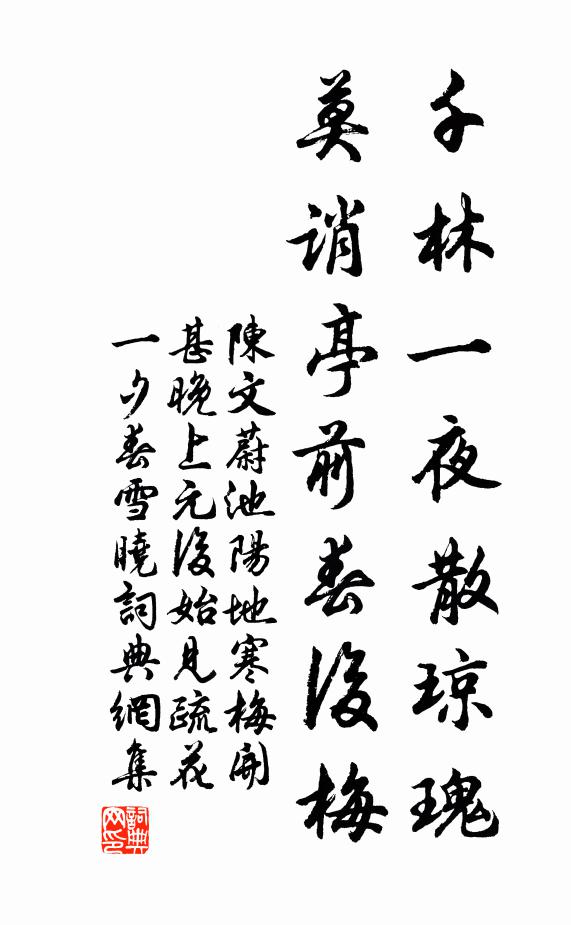 千林一夜散琼瑰
莫誚亭前春後梅
陳文蔚池陽地寒梅開
甚晚上元後始見疏花
一夕春雪曉詞典網集
詞典网印